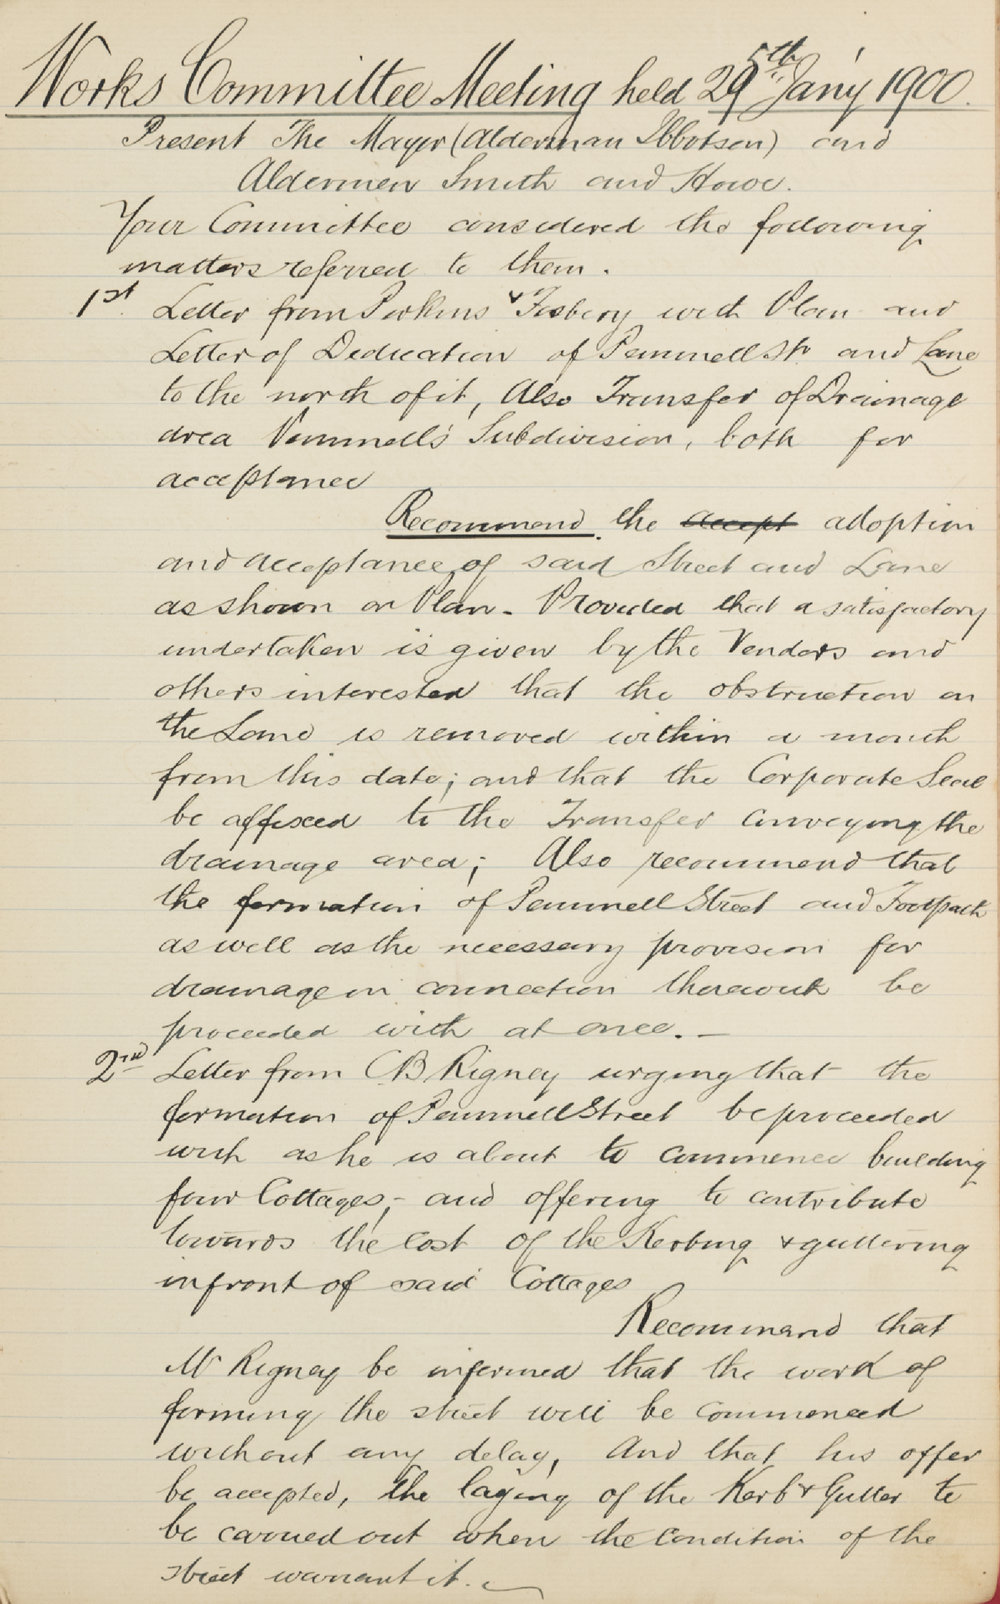 Works Committee Meeting held 29th Jan'y 1900.
Present The Mayor (Alderman Ibbotson) and
Aldermen Smith and Howe.
Your Committee considered the following
matters referred to them.
1st Letter from Perkins & Fosbery with Plan and
Letter of Dedication of Pemmell St. and Lane
to the north of it, Also Transfer of Drainage
area Pemmell's Subdivision, both for
acceptance
Recommend the accept adoption
and acceptance of said Street and Lane
as shown on Plan - Provided that a satisfactory
undertaken is given by the Vendors and
others interested that the obstruction on
the Land is removed within a month
from this date; and that the Corporate Seal
be affixed to the Transfer conveying the
drainage area; Also recommend that
the formation of Pemmell Street and Footpath
as well as the necessary provision for
drainage in connection therewith be
proceeded with at once. -
2nd Letter from C B Rigney urging that the
formation of Pemmell Street be proceeded
with as he is about to commence building
four Cottages, - and offering to contribute
towards the cost of the Kerbing & guttering
in front of said Cottages
Recommend that
Mr Rigney be informed that the work of
forming the street will be commenced
without any delay, And that his offer
be accepted, the laying of the Kerb & Gutter to
be carried out when the condition of the
street warrant it. -